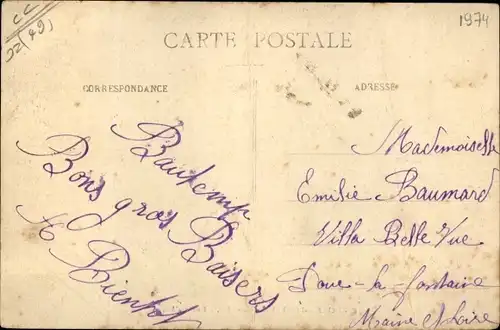 CC
32(49)
1974
CARTE POSTALE
CORRESPONDANCE
ADRESSE
Beautemp
Bons gros Baisers
A Bientot
Mademoiselle
Emilie Baumard
Villa Belle Vue
Doue-la-fontaine
Maine et Loire